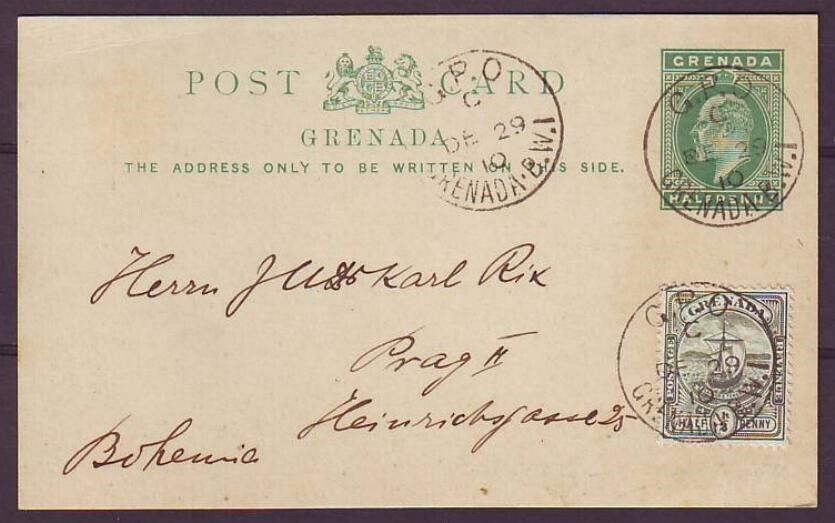 POST CARD
GRENADA
THE ADDRESS ONLY TO BE WRITTEN ON THIS SIDE.
G.P.O
C
DE 29
10
GRENADA. B.W.I
GRENADA
HALFPENNY
G.P.O
C
DE 29
10
GRENADA. B.W.I
Herrn Karl Rix
Prag II
Heinrichsgasse 25
Bohemia
G.P.O
C
29
10
GRENADA
POSTAGE
REVENUE
HALF 1/2 PENNY